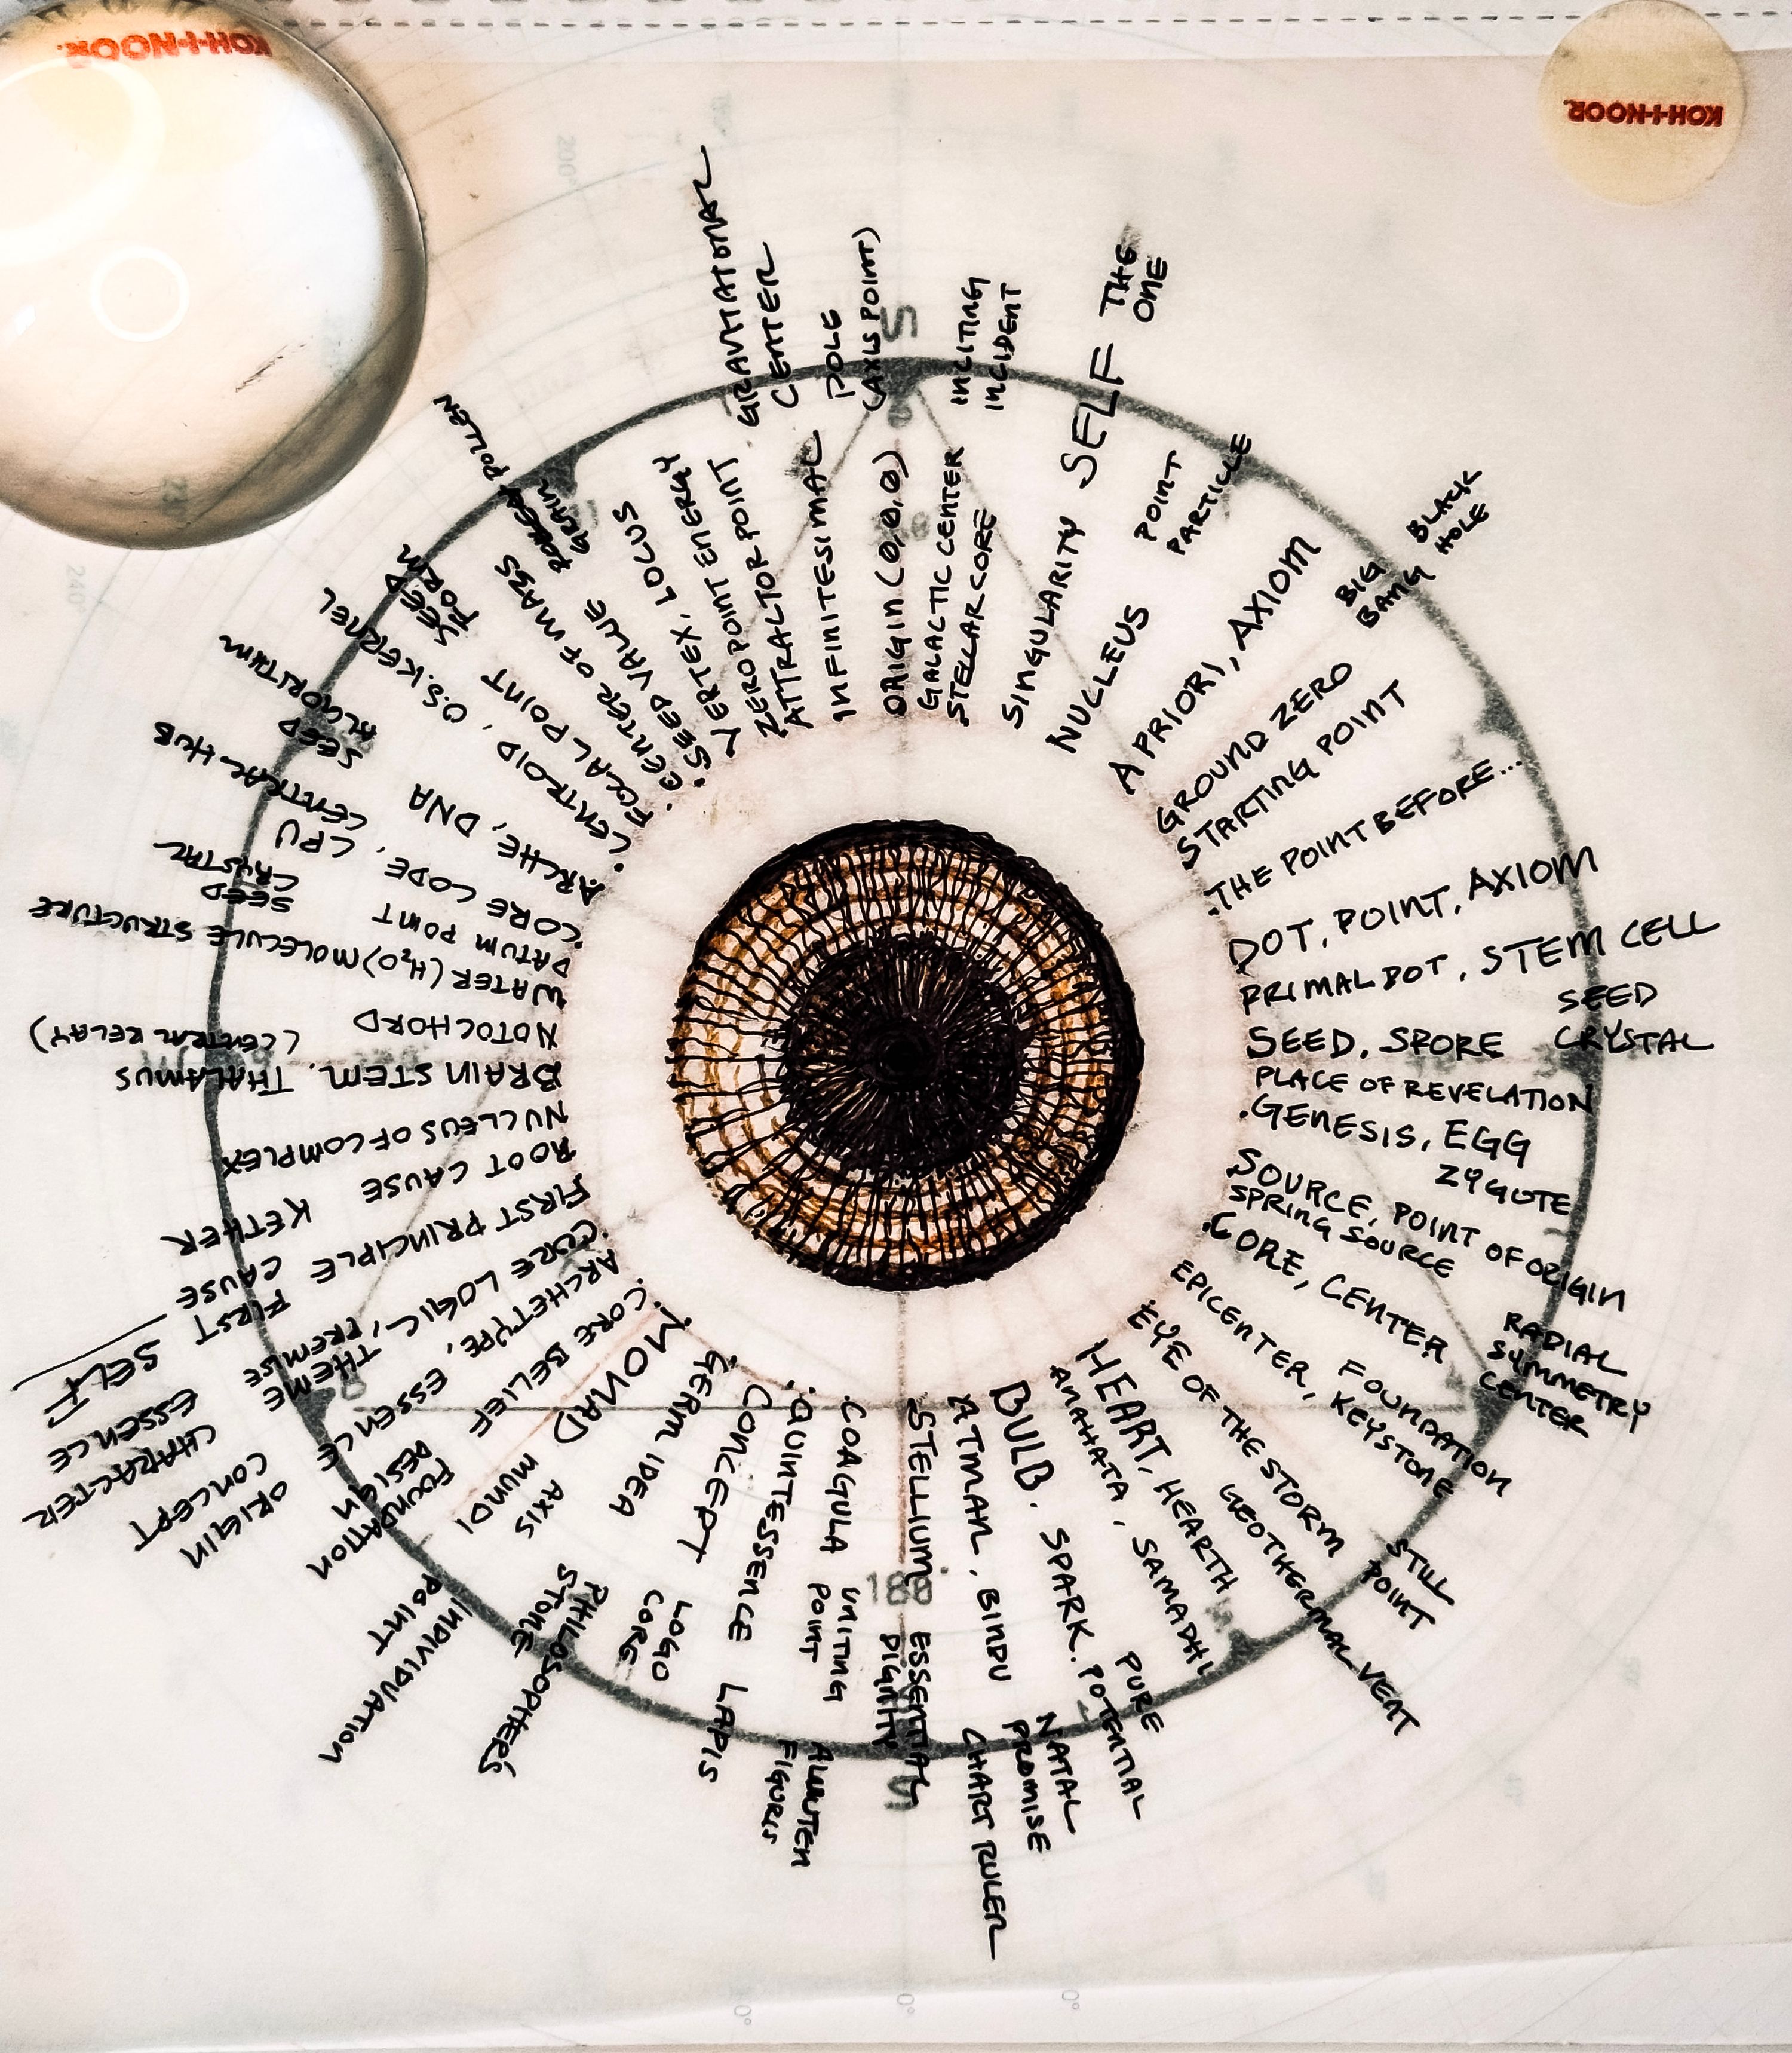 KOH-I-NOOR.
KOH-I-NOOR.
GRAVITATIONAL
CENTER
POLE
(AXIS POINT)
INCITING
INCIDENT
SELF
THE
ONE
INFINITESIMAL
ORIGIN (0,0,0)
GALACTIC CENTER
STELLAR CORE
SINGULARITY
NUCLEUS
POINT
PARTICLE
A PRIORI, AXIOM
BIG
BANG
BLACK
HOLE
GROUND ZERO
STARTING POINT
.THE POINT BEFORE...
DOT, POINT, AXIOM
PRIMAL DOT, STEM CELL
SEED, SPORE
SEED
CRYSTAL
PLACE OF REVELATION
.GENESIS, EGG
ZYGOTE
SOURCE, POINT OF ORIGIN
SPRING SOURCE
.CORE, CENTER
RADIAL
SYMMETRY
CENTER
EPICENTER, KEYSTONE
FOUNDATION
.EYE OF THE STORM
STILL
POINT
GEOTHERMAL VENT
HEART, HEARTH
ANAHATA, SAMADHI
BULB. SPARK.
PURE
POTENTIAL
ATMAN, BINDU
NATAL
PROMISE
CHART RULER
STELLIUM.
ESSENTIAL
DIGNITY
180
COAGULA
UNITING
POINT
ALMUTEN
FIGURIS
.QUINTESSENCE
LAPIS
CONCEPT
LOGO
CORE
GERM IDEA
PHILOSOPHER'S
STONE
.MONAD
AXIS
MUNDI
INDIVIDUATION
POINT
.CORE BELIEF
FOUNDATION
DESIGN
ARCHETYPE, ESSENCE
ORIGIN
CONCEPT
.CORE LOGIC, PREMISE
THEME
CHARACTER
ESSENCE
FIRST PRINCIPLE
FIRST
CAUSE
SELF
ROOT CAUSE
KETHER
NUCLEUS OF COMPLEX
BRAIN STEM. THALAMUS
(CENTRAL RELAY)
NOTOCHORD
WATER (H2O) MOLECULE STRUCTURE
DATUM POINT
SEED
CRYSTAL
.CORE CODE, CPU
CENTRAL HUB
ARCHE, DNA
SEED
ALGORITHM
.CENTROID, O.S. KERNEL
.FOCAL POINT
SEED
FORM
.CENTER OF MASS
.SEED VALUE
POLLEN
GRAIN
VERTEX, LOCUS
ZERO POINT ENERGY
ATTRACTOR POINT
240°